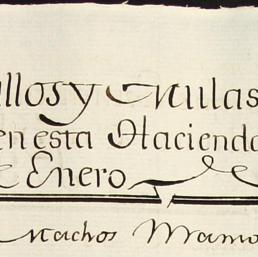 llos y Mulas
en esta Haciend
e Enero
Machos Mamo